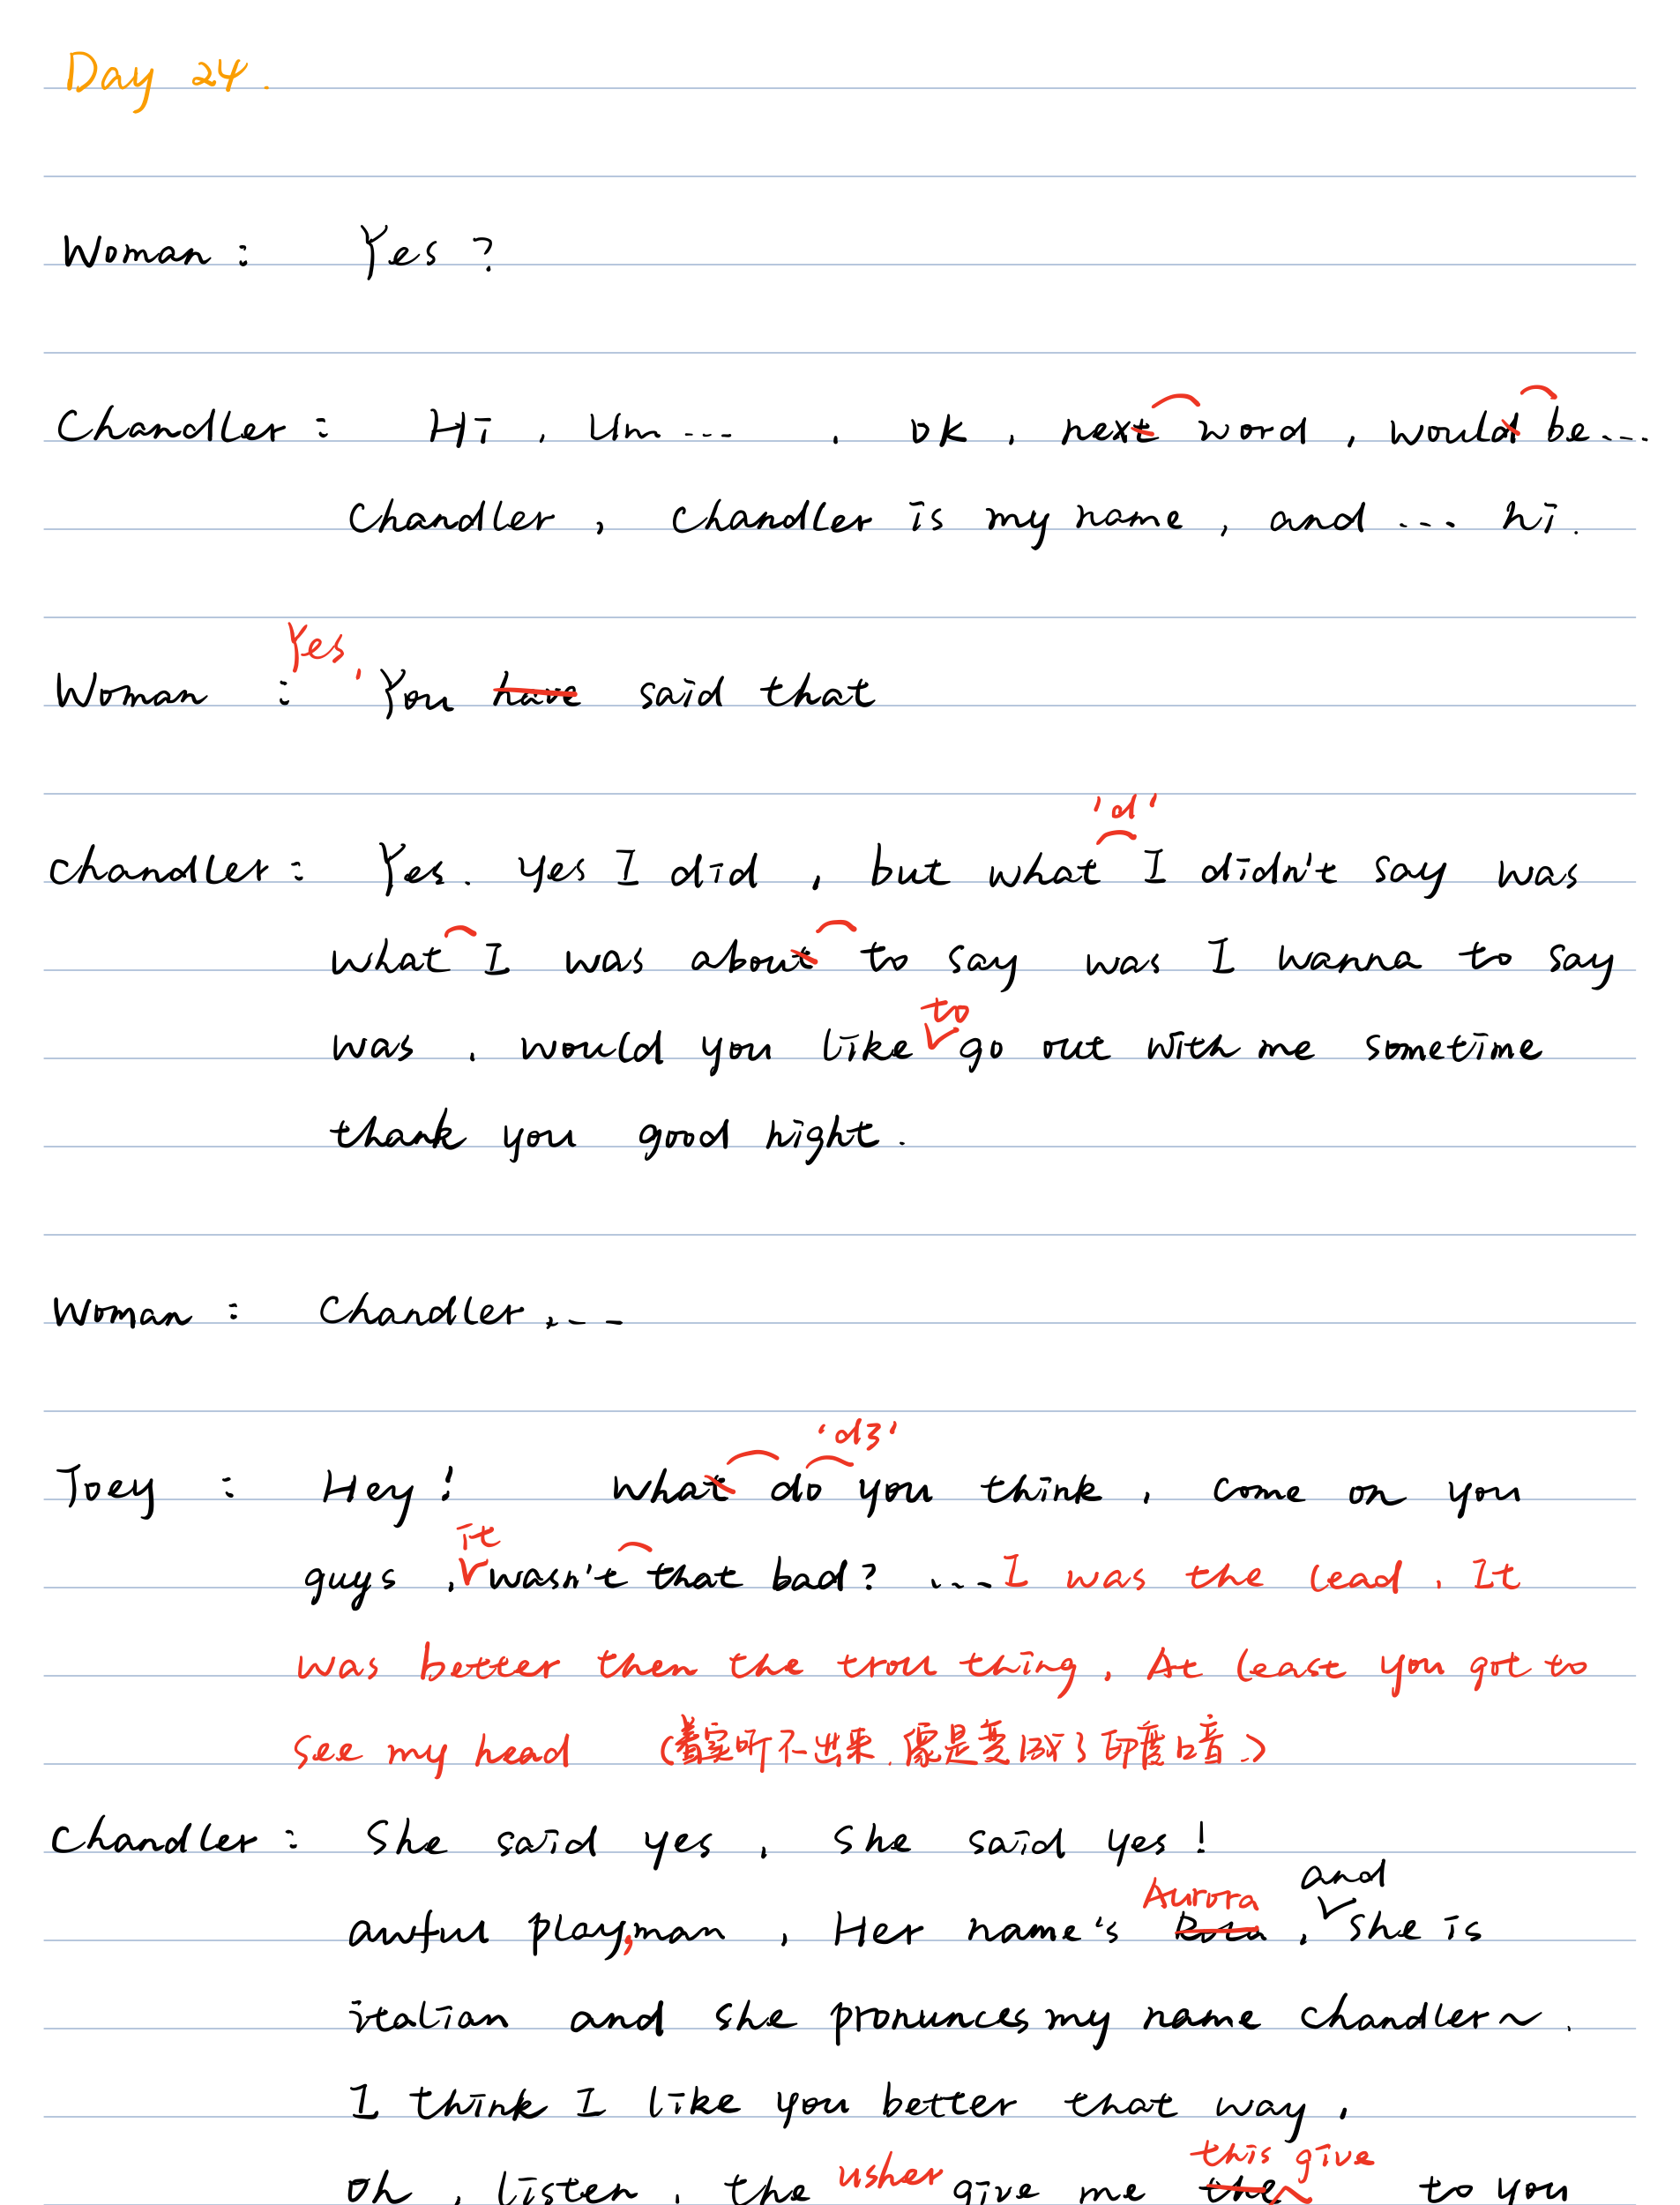 Day 24.
Woman : Yes ?
Chandler : Hi , Um --- , ok , next word , would be ...
Chandler , Chandler is my name , and --- hi .
Yes ,
Woman : You have said that
'd'
Chandler : Yes . yes I did , but what I didn't say was
what I was about to say was I wanna to say
to
was , would you like go out with me sometime
thank you good night .
Woman : Chandler , ---
'dʒ'
Joey : Hey ! What do you think , come on you
it
guys , wasn't that bad ? ... I was the lead . It
was better then the troll thing . At least you got to
see my head (着实听不出来 . 像是变成了印度口音 .)
Chandler : She said yes , she said yes !
Aurora and
awful play,man , Her name's , she is
italian and she pronunces my name chandler ~ .
I think I like you better that way ,
this give
oh , listen , the usher give me the to you